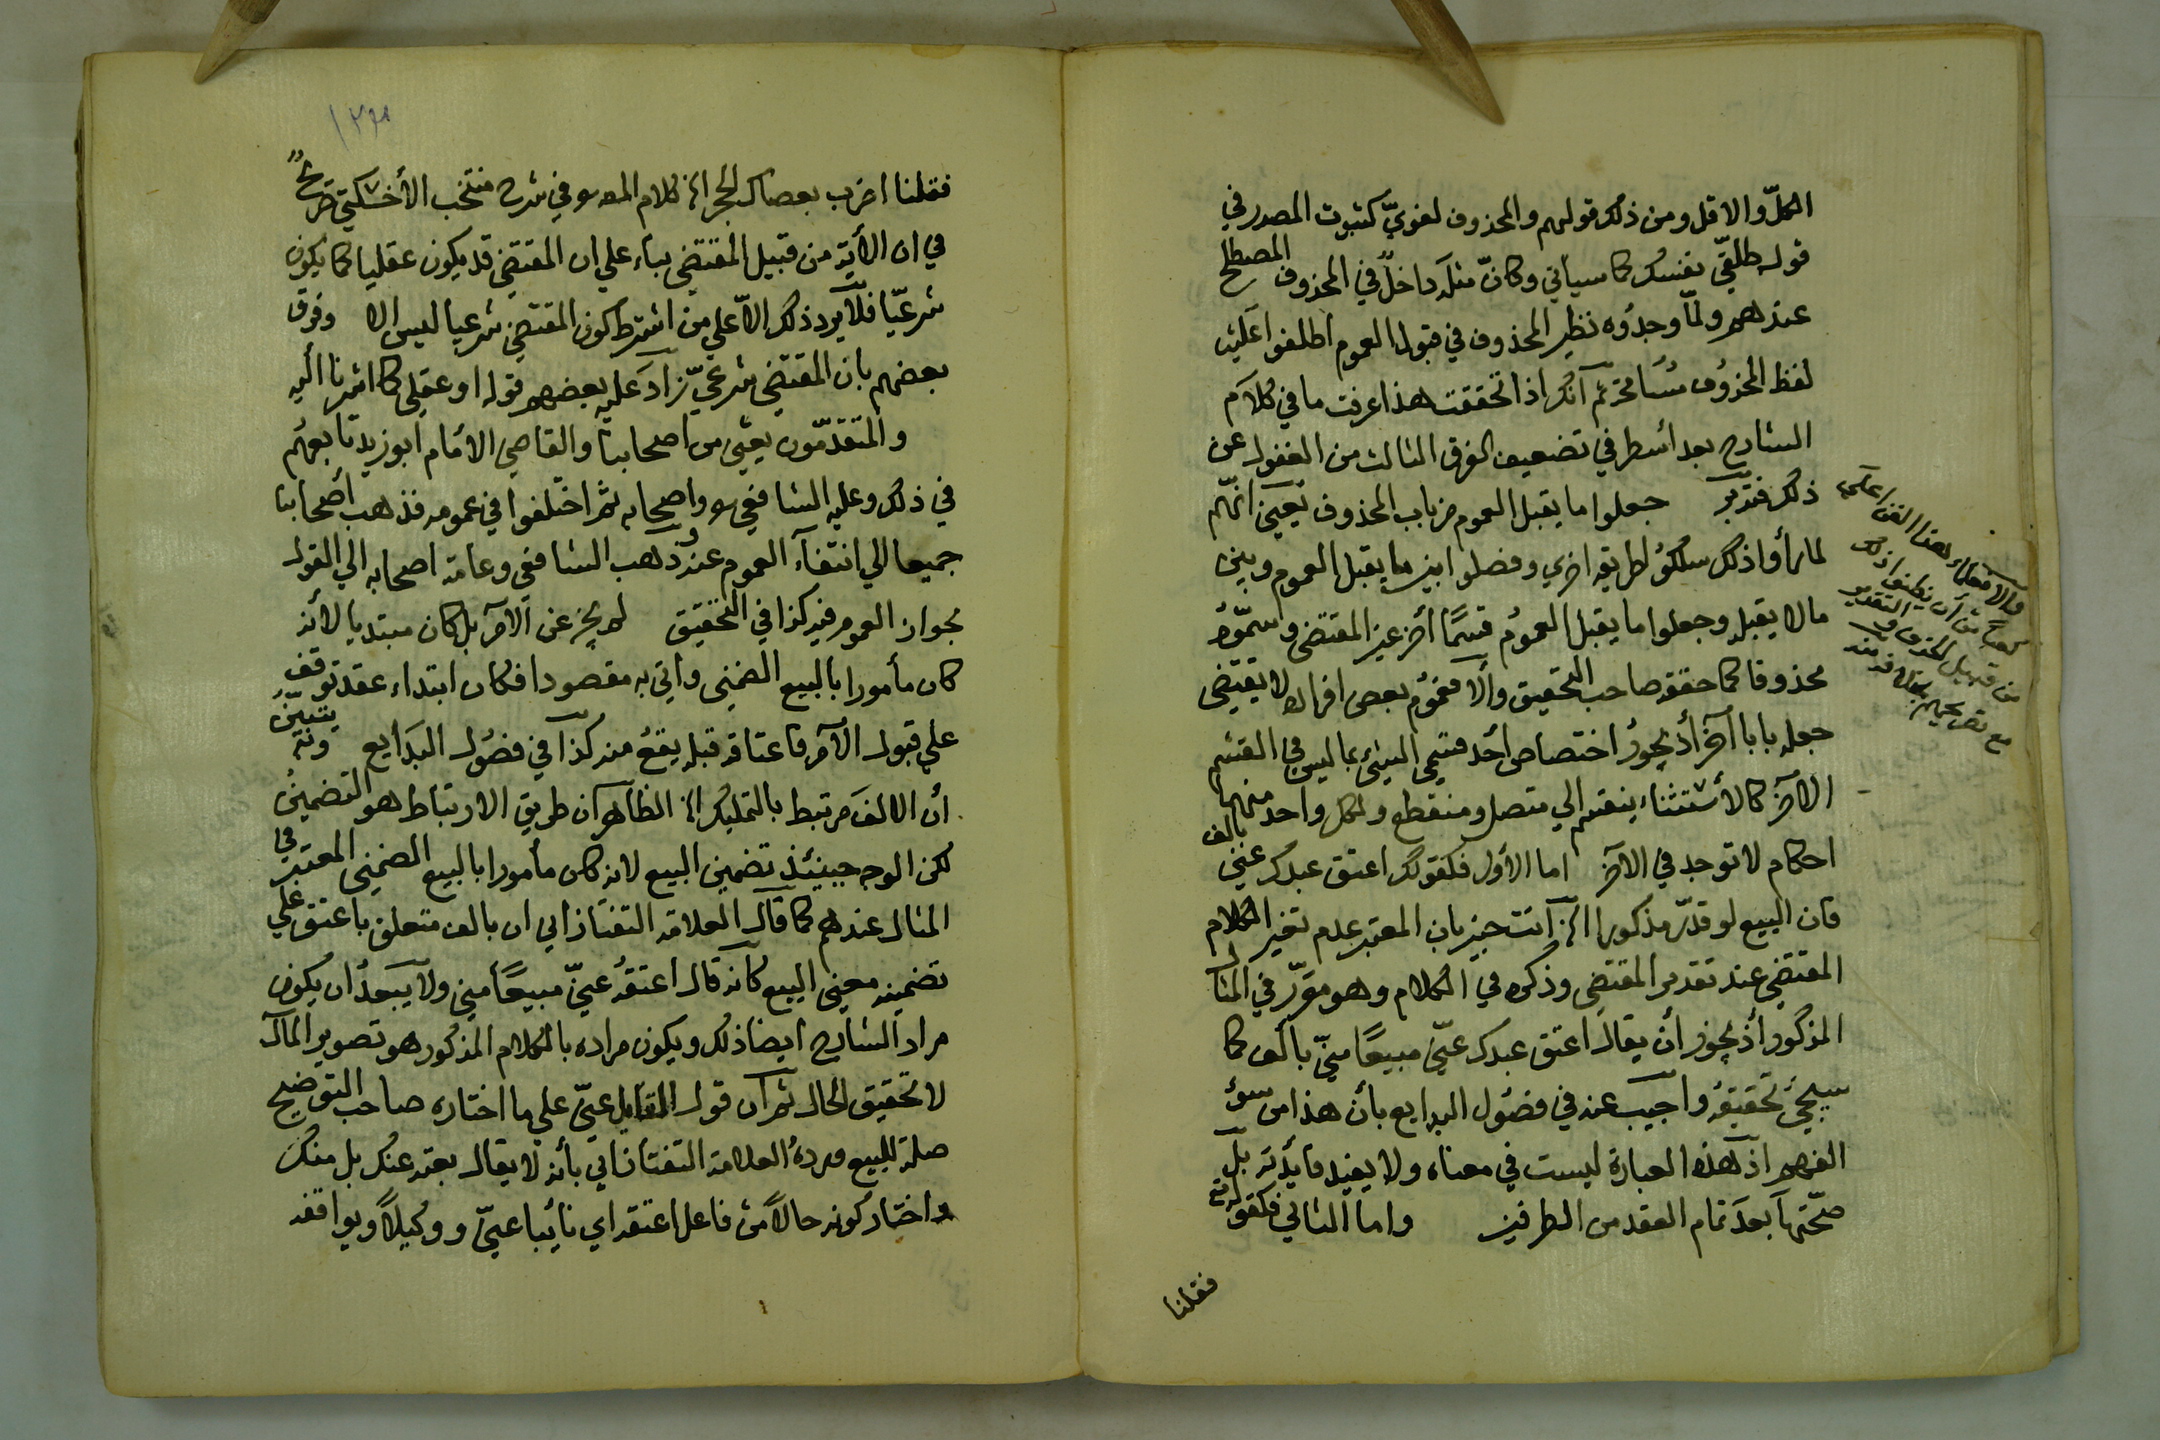 الكلّ والاقل ومن ذلك قولهم والمحذوف لغويّ كثبوت المصدر في
قوله طلقي نفسك كما سياتي وكانّ مثله داخلً في المحذوف المصطلح
عندهم ولمّا وجدُوه نظير المحذوف في قبول العموم اطلقوا عليه
لفظ المحذوف مُسَامحة ثم انك اذا تحققت هذا عرفت ما في كلام
الشارح بعد أسطر في تضعيف الفرق الثالث من الغفول عن
ذلك فتدبّر جعلوا ما يقبل العموم من باب المحذوف يَعني انّهم
لما رأوا ذلك سلكوُ طريقه اخري وفصلوا بين ما يقبل العموم وبين
مالا يقبله وجعلوا ما يقبل العمومُ قسمًا أخر غير المقتضي وسمّوُه
محذوفا كما حققه صاحب التحقيق والّا فعمُوم بعض افراده لا يقتضي
جعله بابا آخر أذ يجوزُ اختصاص أحد قسمي الشيئ بما ليس في القسم
الآخر كالأستثناء ينقسم الي متصل ومنقطع ولكل واحد منهما
احكام لا توجد في الآخر اما الأول فكقولك اعتق عبدك عنّي بالف
فان البيع لو قدّر مذكورا الخ آنت خبير بان المعتبر عدم تغير الكلام
المقتضي عند تقدير المقتضي وذكره في الكلام وهو مقرّر في المثال
المذكور أذ يجوز أن يقال اعتق عبدك عنّي مبيعًا منّي بالف كما
سيجيُ تحقيقهُ وأجيب عنه في فصُول البدايع بأن هذا من سوُ
الفهم اذ هذه العبارة ليست في معناه ولا يفيد فايدته بل
صحّتها بعد تمام العقد من الطرفين واما الثاني فكقوله تع
فقلنا
والافعلماء هذا الفن اعلي
كعبا من أن يظن ذلك
من قبيل الحذف والتقدير
مع تصريحهم
١٣٨
فقلنا اضرب بعصاك الحجر الخ كلام المصـ في شرح منتخب الأخسكتي صريح
في ان الأية من قبيل المقتضي بناء علي ان المقتضي قد يكون عقليا كما يكون
شرعيّا فلا يرد ذلك الّا علي من اشترط كون المقتضي شرعيا ليس الا وفرق
بعضهم بان المقتضي شرعيّ زاد عليه بعضهم قوله او عقلي كما اشرنا اليه
والمتقدّمون يعني من اصحابنا والقاضي الامام ابو زيد تابعهُم
في ذلك وعليه الشافعي واصحابه ثم اختلفوا في عمومه فذهب أصحابنا
جميعا الي انتفآء العموم عنه وذهب الشافعي وعامة اصحابه الي القول
بجواز العموم فيه كذا في التحقيق لم يجز عن الآمر بل كان مبتديا لأنه
كان مأمورا بالبيع الضمني واتي به مقصودا فكان ابتداء عقد توقف
علي قبول الآمر فاعتاقه قبله يقع منه كذا في فصُول البدَايع ونتبيّن
أن الالف مرتبط بالتمليك الخ الظاهر ان طريق الارتباط هو التضمينُ
لكن الوجه حينئذ تضمين البيع لانه كان مأمورا بالبيع الضمني المعتبر في
المثال عندهم كما قال العلامة التفتازاني ان بالف متعلق باعتق علي
تضمينه معني البيع كانه قال اعتقهُ عنّي مبيعًا مني ولا يبعدُ ان يكون
مراد الشارح ايضا ذلك ويكون مراده بالكلام المذكور هو تصوير المآل
لا تحقيق الحال ثم ان قول القايل عنّي علي ما اختاره صاحب التوضيح
صلة للبيع ورده العلامة التفتازاني بأنه لا يقال بعته عنك بل منك
واختار كونه حالاً من فاعل اعتقه اي نائبا عنيّ ووكيلاً ويوافقه